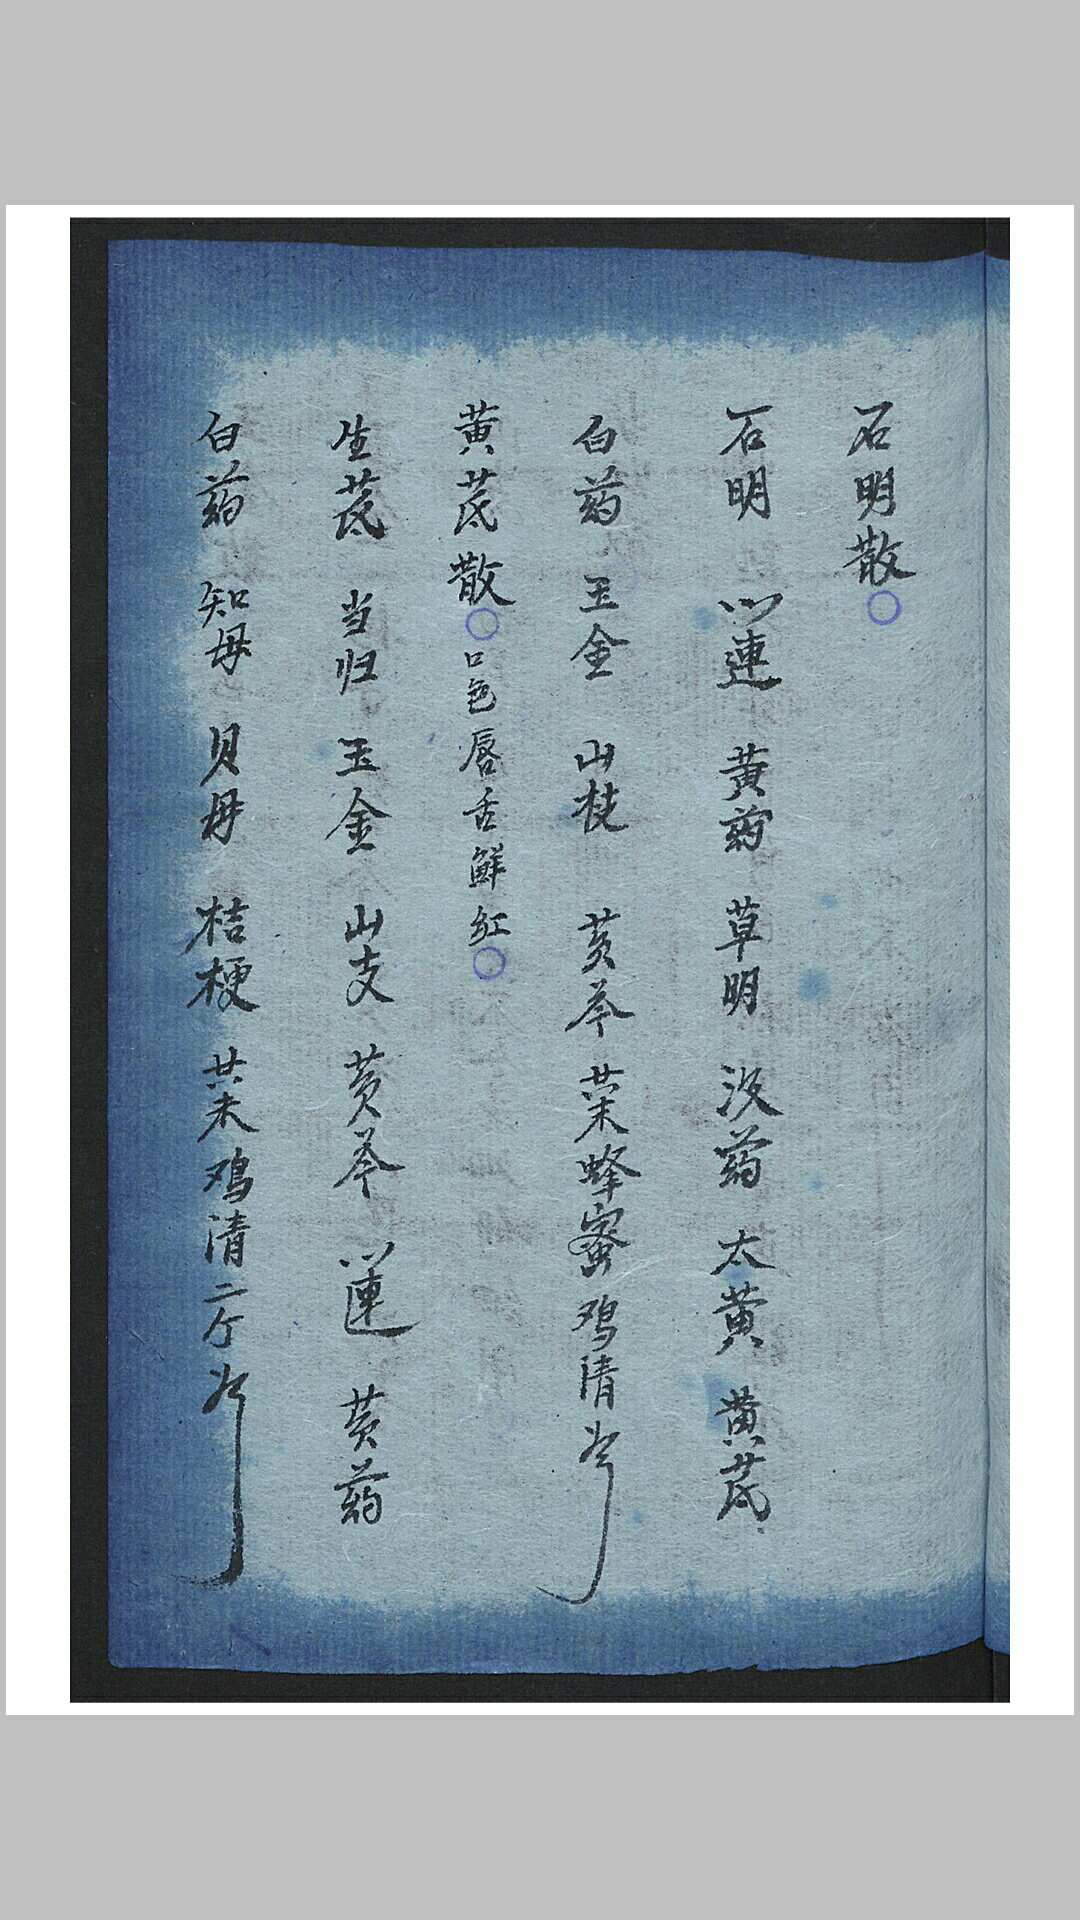 石明散○
石明 川連 黄药 草明 没药 大黄 黄芪
白药 玉金 山枝 黄芩 共末蜂蜜鸡清
黄芪散○口色唇舌鲜红○
生芪 当归 玉金 山支 黄芩 川連 黄药
白药 知母 贝母 桔梗 共末鸡清二个